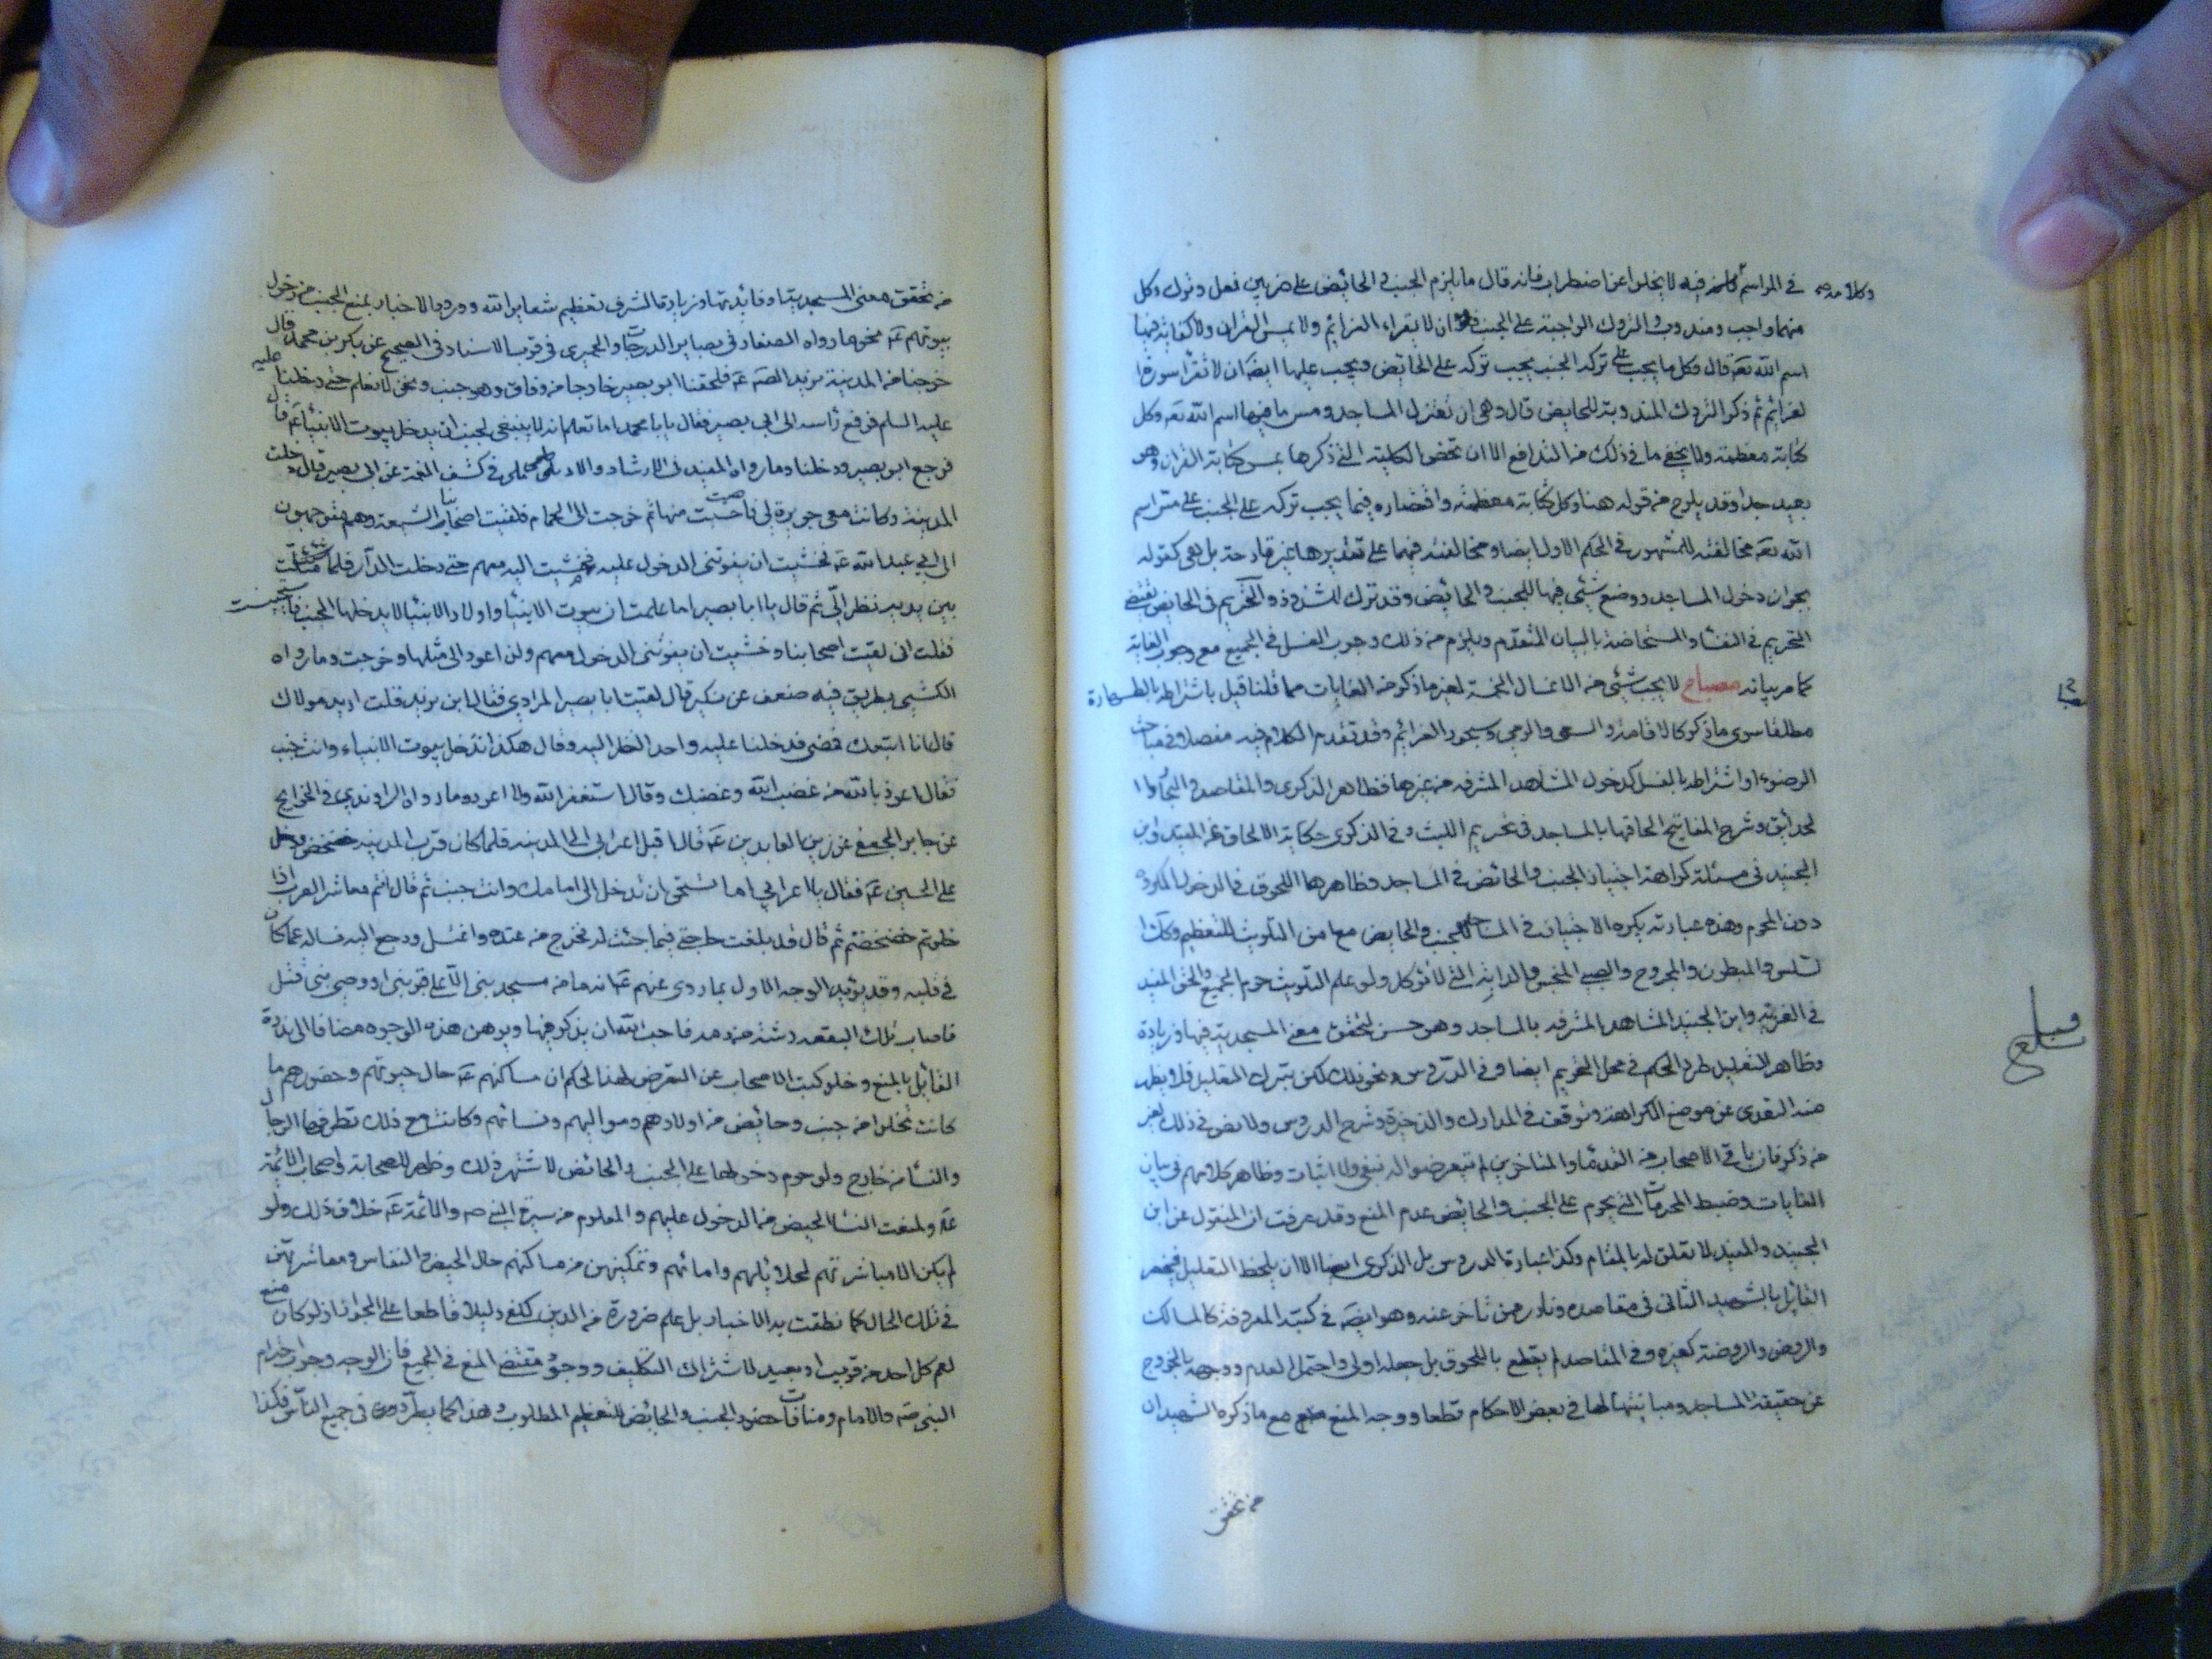 في المراسم كلامه فيه لا يخلوا عن اضطراب فانه قال ما يلزم الجنب و الحائض على ضربين فعل وترك وكل
منهما واجب ومندوب والتروك الواجبة على الجنب ان لا يقراء العزائم ولا يمس القران ولا كتابة فيها
اسم الله تعه قال وكل ما يجب على تركه الجنب يجب تركه على الحائض ويجب عليها ايضه ان لا تقرأ سورة ا
لعزائم ثم ذكر التروك المندوبة للحايض قال وهى ان تعتزل المساجد ومس ما فيها اسم الله تعه وكل
كتابة معظمة ولا يخفى ما في ذلك من التدافع الا ان تخص الكلية التي ذكرها بمس كتابة القران وهو
بعيد جدا وقد يلوح من قوله هنا وكل كتابة معظمة واقتصاره فيما يجب تركه على الجنب على مس اسم
الله تعه مخالفته للمشهور في الحكم الاول ايضا ومخالفته فيهما على تقديرها غير قادحة بل هى كقوله
بجواز دخول المساجد ووضع شيئ فيها للجنب والحائض وقد ترك للشذوذ والتحريم في الحايض يقتضى
التحريم في النفساء والمستحاضة بالبيان المتقدم ويلزم من ذلك وجوب الغسل في الجميع مع وجوب الغاية
كما مر بيانه مصباح لا يجب شئ من الاغسال الخمسة لغير ما ذكر من الغايات مما قلنا قيل باشتراطه بالطهارة
مطلقا سوى ما ذكر كالاقامة والسعى والرمي وسجود العزائم وقد تقدم الكلام فيه مفصلا في مباحث
الوضوء او اشتراطه بالغسل كدخول المشاهد المشرفه من غيرها فظاهر الذكرى والمقاصد و البحار وا
لحدائق وشرح المفاتيح الحاقها بالمساجد في تحريم اللبث وفي الذكرى حكاية الالحاق عن المفيد وابن
الجنيد في مسئلة كراهة اجتياز الجنب والحائض في المساجد وظاهرهما اللحوق في الدخول المكروه
دون المحرم وهذه عبارته يكره الاجتياز في المساجد للجنب والحايض مع امن التلويث للتعظيم وكذا
السلس والمبطون والمجروح والصبي المنجس والدابة التي لا تؤكل ولو علم التلويث حرم الجميع والحق المفيد
في الغرية وابن الجنيد المشاهد المشرفه بالمساجد وهو حسن لتحقق معنى المسجدية فيها وزيادة
وظاهر التعليل طرد الحكم في محل التحريم ايضا وفي الدروس ونحو ذلك لكن بترك التعليل فلا يظهر
منه التعدى عن موضع الكراهة وتوقف في المدارك والذخيرة وشرح الدروس ولا نص في ذلك لغير
من ذكر فان باقي الاصحاب من القدماء والمتاخرين لم يتعرضوا له بنفى ولا اثبات وظاهر كلامهم في بيان
الغايات وضبط المحرمات التي يحرم على الجنب والحائض عدم المنع وقد عرفت ان المنقول عن ابن
الجنيد والمفيد لا تعلق له بالمقام وكذا عبارة الدروس بل الذكرى ايضا الا ان يلحظ التعليل فينحصر
القائل بالشهيد الثاني في مقاصده ونادر ممن تاخر عنه وهو ايضه في كتبه المعروفة كالمسالك
والروض والروضة كغيره وفي المقاصد لم يقطع باللحوق بل جعله اولى واحتمل العدم ووجهه بالخروج
عن حقيقة المساجد ومباينتها لها في بعض الاحكام قطعا ووجه المنع مع ما ذكره الشهيدان
من تحقق
من تحقق معنى المسجدية وفائدتها وزيادة الشرف تعظيم شعاير الله وورود الاخبار بمنع الجنب من دخول
بيوتهم عه نحو ما رواه الصفار في بصاير الدرجات والحميرى في قرب الاسناد في الصحيح عن بكر بن محمد قال
خرجنا من المدينة نريد الصه عه فلحقنا ابو بصير خارجا من زقاق وهو جنب ونحن لا نعلم حتى دخلنا عليه
عليه السلم فرفع رأسه الى ابي بصير فقال يا با محمد اما تعلم انه لا ينبغى لجنب ان يدخل بيوت الانبياء عه قال
فرجع ابو بصير ودخلنا وما رواه المفيد في الارشاد والاربلى في كشف الغمة عن ابى بصير قال دخلت
المدينة وكانت معى جويرة لي فاصبت منها ثم خرجت الى الحمام فلقيت اصحابنا الشيعة وهم متوجهون
الى ابي عبد الله عه فخشيت ان يفوتنى الدخول عليه فمشيت اليه معهم حتى دخلت الدار فلما مثلت
بين يديه نظر الي ثم قال يا ابا بصير اما علمت ان بيوت الانبياء واولاد الانبياء لا يدخلها الجنب فاستحييت
فقلت انى لقيت اصحابنا وخشيت ان يفوتنى الدخول معهم ولن اعود الى مثلها وخرجت وما رواه
الكشى بطريق فيه ضعف عن بكير قال لقيت ابا بصير المرادي فقال اين تريد قلت اريد مولاك
قال انا اتبعك فمضى فدخلنا عليه واحد النظر اليه وقال هكذا تدخل بيوت الانبياء وانت جنب
فقال اعوذ بالله من غضب الله وغضبك وقال استغفر الله ولا اعود وما رواه الراوندي في الخرايج
عن جابر الجعفى عن زين العابدين عه قال اقبل اعرابى الى المدينه فلما كان قرب المدينه خضخض ودخل
على الحسين عه فقال يا اعرابي اما تستحى ان تدخل الى امامك وانت جنب ثم قال انتم معاشر العرب اذا
خلوتم خضخضتم ثم قال قد بلغت حاجتى فيما جئت له فخرج من عنده واغتسل ورجع اليه فساله عما كان
في قلبه وقد يؤيد الوجه الاول بما روى عنهم عه انه ما من مسجد بنى الا على قبر نبى او وصى نبى قتل
فاصاب تلك البقعه رشة من دمه فاحب الله ان يذكر فيها ويوهن هذه الوجوه مضافا الى ندرة
القائل بالمنع وخلو كتب الاصحاب عن التعرض لهذا الحكم ان مساكنهم عه حال حيوتهم وحضورهم ما
كانت تخلوا من جنب وحائض من اولادهم ومواليهم ونسائهم وكانت مع ذلك تطرقها الرجال
والنساء من خارج ولو حرم دخولها على الجنب والحائض لاشتهر ذلك وظهر للصحابة واصحاب الائمة
عه ولمنعت النساء الحيض من الدخول عليهم والمعلوم من سيرة النبي صه والائمة عه خلاف ذلك ولو
لم يكن الا مباشرتهم لحلائلهم وامائهم وتمكينهن من مساكنهم حال الحيض والنفاس ومعاشرتهن
في تلك الحال كما نطقت به الاخبار بل علم ضرورة من الدين كفى دليلا قاطعا على الجواز اذ لو كان منع
لعم كل احد من قريب او بعيد لاشتراك التكليف ووجود مقتضى المنع في الجميع فان الوجه وجوب احترام
النبى صه والامام ومنافات حضور الجنب والحائض للتعظيم المطلوب وهذا كما يطرد في جميع الناس فكذا